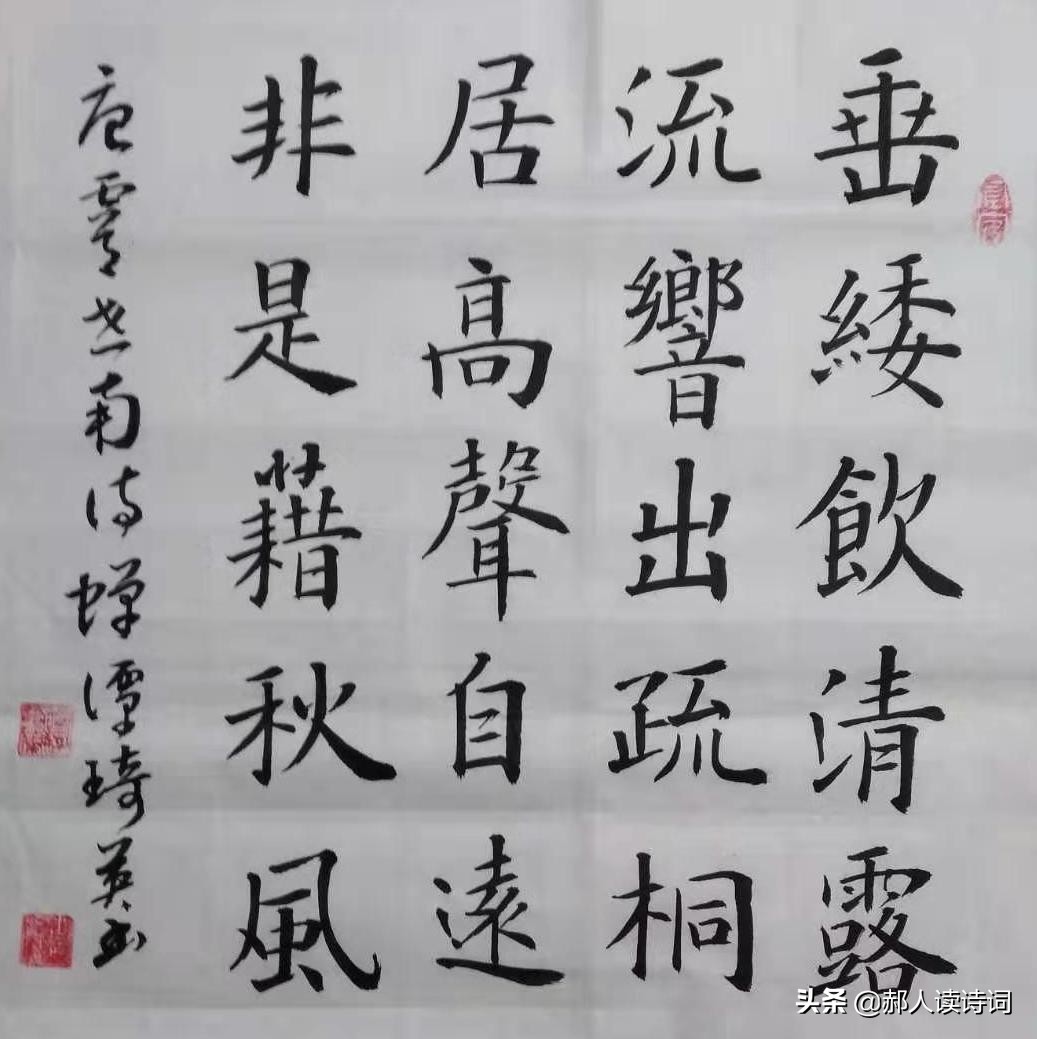 垂緌飲清露
流響出疏桐
居高聲自遠
非是藉秋風
唐虞世南诗蝉譚琦英书
头条 @郝人读诗词